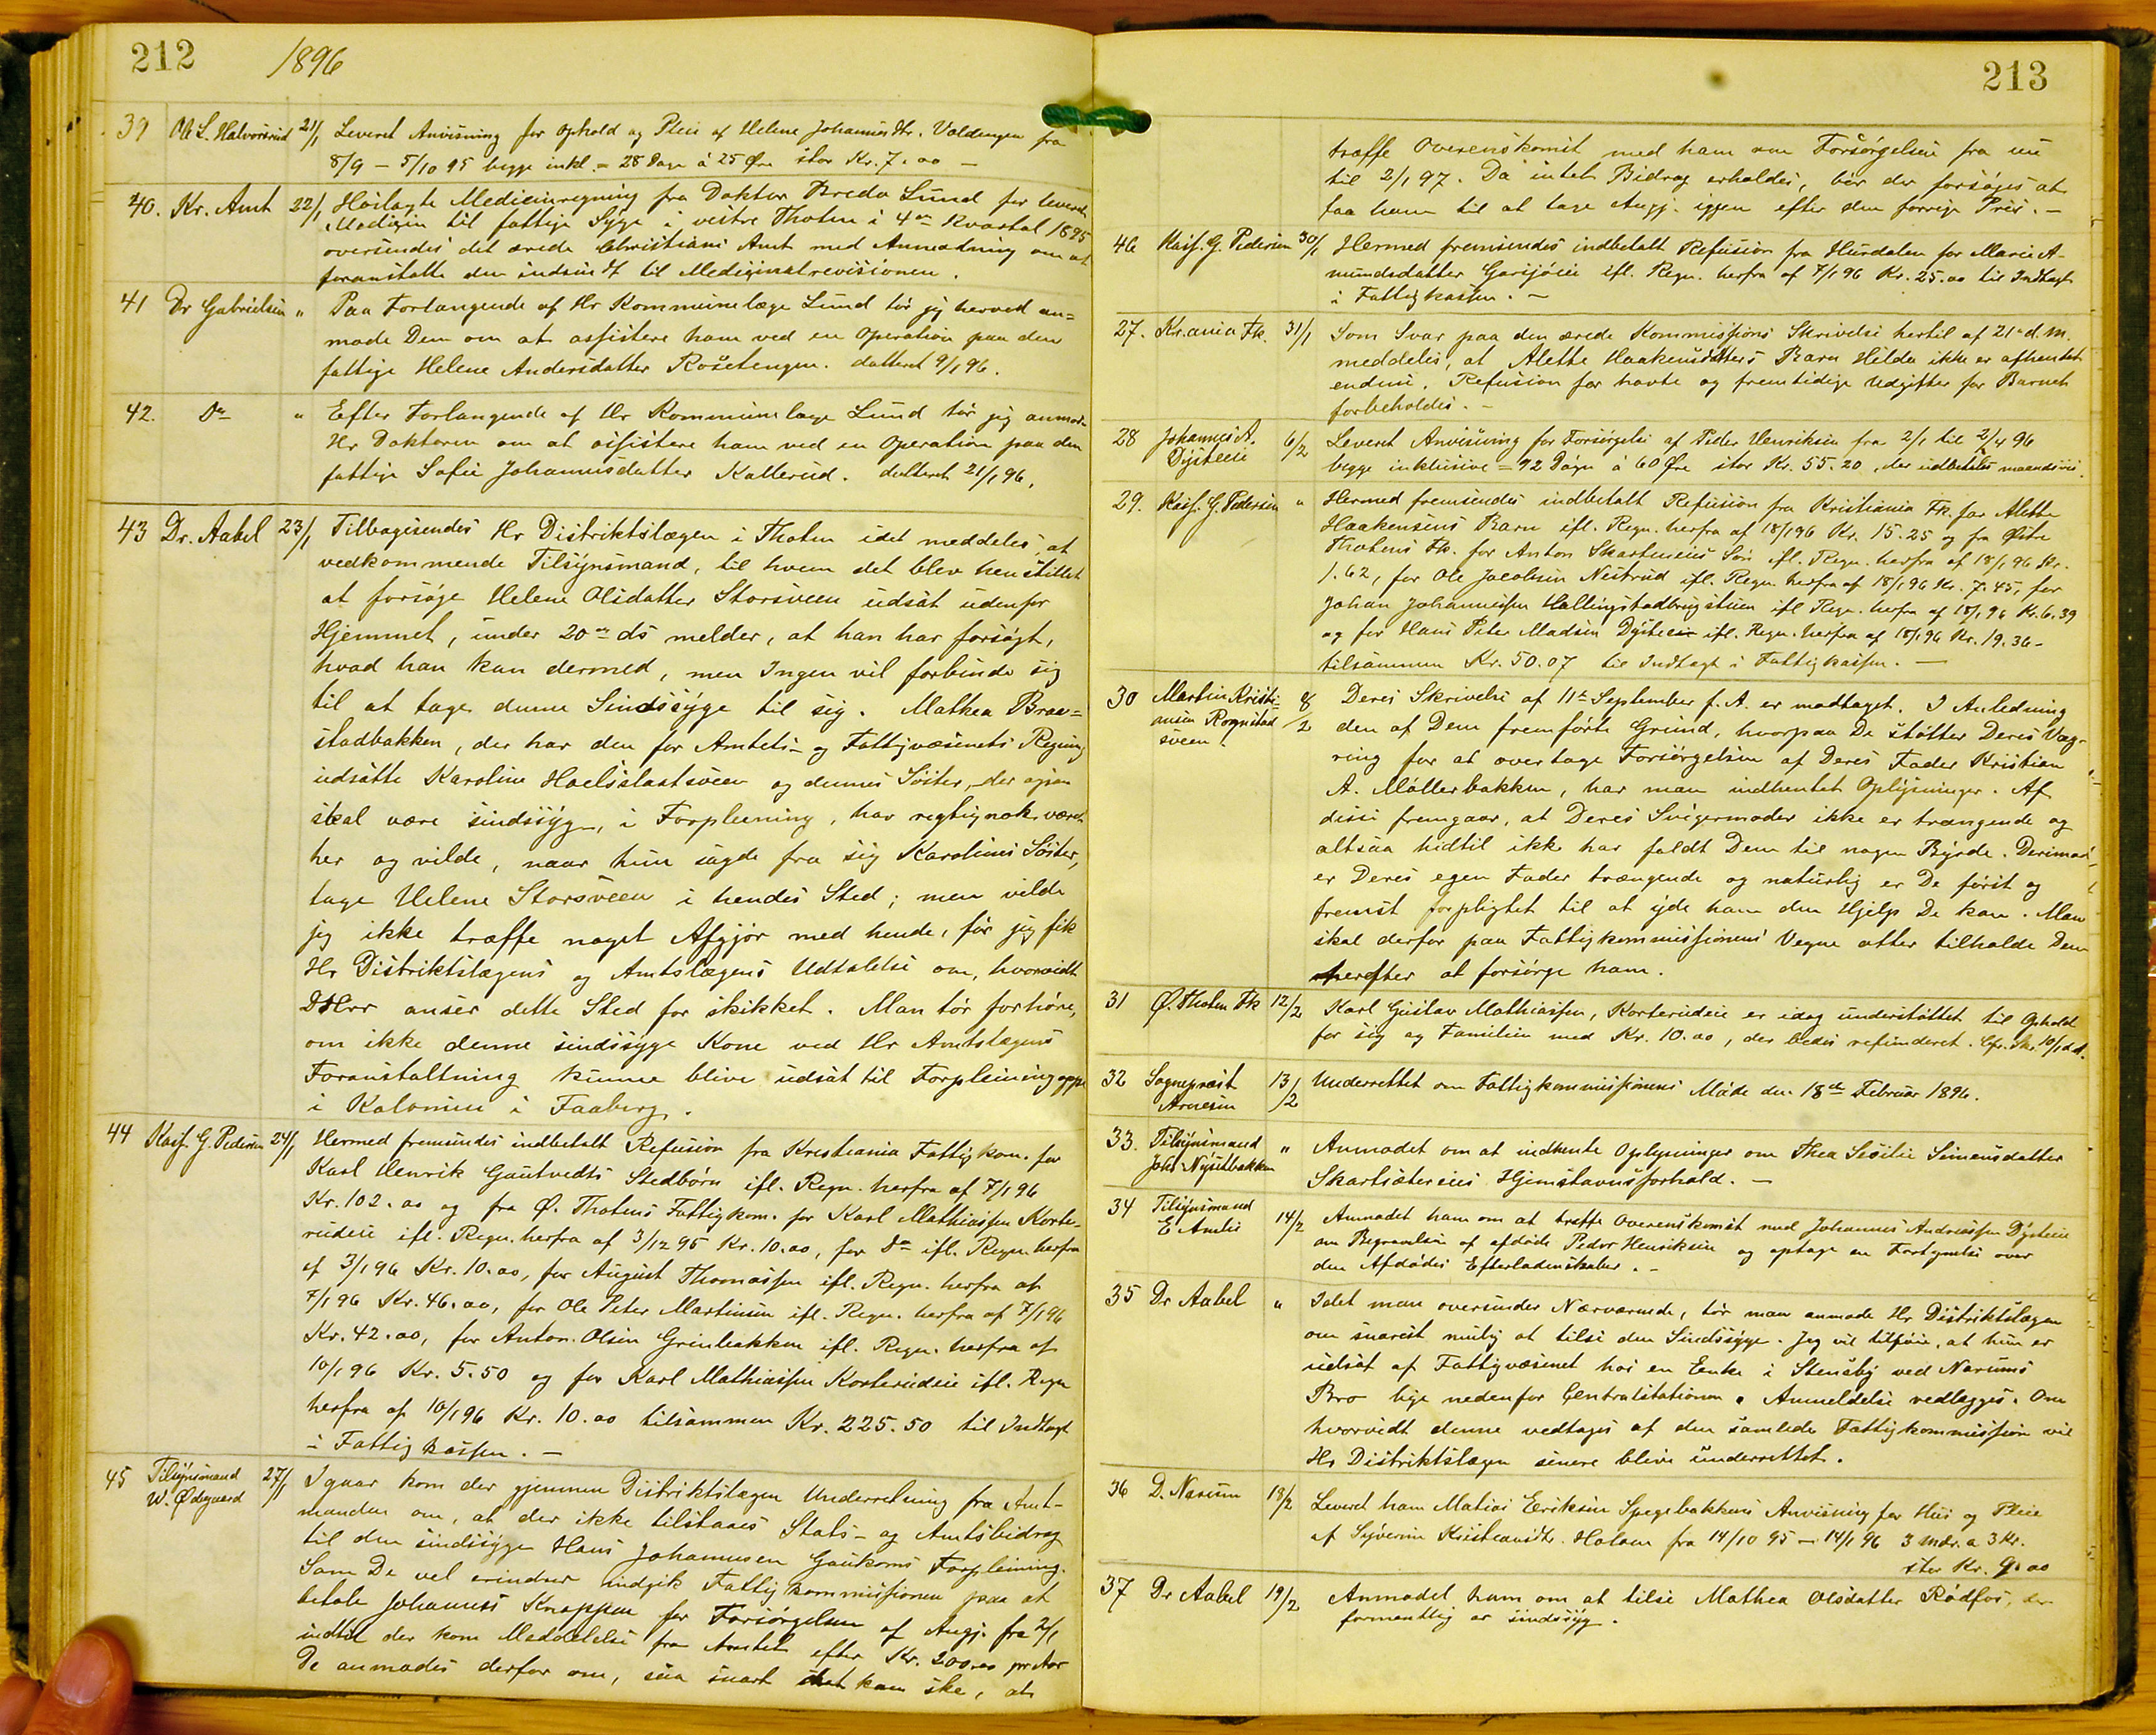 212 1896
39 Ole L. Halvorsrud 21/1 Leveret Anvisning for Ophold og Pleie af Helene Johannesdtr. Valdengen fra
8/9 – 5/10 95 begge inkl. = 28 Dage à 25 Øre stor Kr. 7.00 –
40. Kr. Amt 22/1 Hoslagte Medicinregning fra Doktor Breda Lund for leveret
Medicin til fattige Syge i vestre Thoten i 4de Kvartal 1895
oversendes det ærede Christians Amt med Anmodning om at
foranstalte den indsendt til Medicinalrevisionen.
41 Dr Gabrielsen " Paa Forlangende af Hr Kommunelæge Lund tør jeg herved an=
mode Dem om at assistere ham ved en Operation paa den
fattige Helene Andersdatter Rosetengen. datteret 9/1 96.
42. Do " Efter Forlangende af Hr Kommunelæge Lund tør jeg anmode
Hr Doktoren om at assistere ham ved en Operation paa den
fattige Sofie Johannesdatter Kallerud. datteret 21/1 96.
43 Dr. Aabel 23/1 Tilbagesendes Hr Distriktslægen i Thoten idet meddeles, at
vedkommende Tilsynsmand, til hvem det blev henstillet
at forsøge Helene Olsdatter Storsveen udsat udenfor
Hjemmet, under 20de ds melder, at han har forsøgt,
hvad han kan dermed, men Ingen vil forbinde sig
til at tage denne Sindssyge til sig. Mathea Braa=
stadbakken, der har den for Amtets- og Fattigvæsenets Regning
udsatte Karoline Hoelsslaatsveen og dennes Søster, der ogsaa
skal være sindssyg, i Forpleining, har rigtignok været
her og vilde, naar hun sagde fra sig Karolines Søster,
tage Helene Storsveen i hendes Sted; men vilde
jeg ikke træffe noget Afgjør med hende, før jeg fik
Hr Distriktslægens og Amtslægens Udtalelse om, hvorvidt
DHrr anser dette Sted for skikket. Man tør forhøre,
om ikke denne sindssyge Kone ved Hr Amtslægens
Foranstaltning kunne blive udsat til Forpleining oppe
i Kolonien i Faaberg.
44 Kass. G. Pedersen 24/1 Hermed fremsendes indbetalt Refusion fra Kristiania Fattigkom. for
Karl Henrik Gautvedts Stedbørn ifl. Regn. herfra af 7/1 96
Kr. 102.00 og fra Ø. Thotens Fattigkom. for Karl Mathiassen Korte-
rudeie ifl. Regn. herfra af 3/12 95 Kr. 10.00, for Do ifl. Regn. herfra
af 3/1 96 Kr. 10.00, for August Thomassen ifl. Regn. herfra af
7/1 96 Kr. 46.00, for Ole Peter Martinsen ifl. Regn. herfra af 7/1 96
Kr. 42.00, for Anton Olsen Grinbakken ifl. Regn. herfra af
10/1 96 Kr. 5.50 og for Karl Mathiassen Korterudeie ifl. Regn
herfra af 10/1 96 Kr. 10.00 tilsammen Kr. 225.50 til Indtægt
i Fattigkassen. –
45 Tilsynsmand W. Ødegaard 27/1 Igaar kom der gjennem Distriktslægen Underretning fra Amt-
manden om, at der ikke tilstaaes Stats- og Amtsbidrag
til den sindssyge Hans Johannesen Gaukoms Forpleining.
Som De vel erindrer indgik Fattigkommissionen paa at
betale Johannes Knappen for Forsørgelsen af Angj. fra 2/1
indtil der kom Meddelelse fra Amtet efter Kr. 200.00 pr Aar
De anmodes derfor om, saa snart det kan ske, at
213
træffe Overenskomst med ham om Forsørgelsen fra nu
til 2/1 97. Da intet Bidrag erholdes, bør der forsøges at
faa ham til at tage Angj. igjen efter den forrige Pris. –
46 Kass. G. Pedersen 30/1 Hermed fremsendes indbetalt Refusion fra Hurdalen for Marie A-
mundsdatter Garsjøeie ifl. Regn. herfra af 7/1 96 Kr. 25.00 til Indtægt
i Fattigkassen. –
27. Kr.ania Fk. 31/1 Som Svar paa den ærede Kommissions Skrivelse hertil af 21de d.M.
meddeles, at Alette Haakensdatters Barn Hilda ikke er afhentet
endnu. Refusion for havte og fremtidige Udgifter for Barnet
forbeholdes. –
28 Johannes A. Dysteeie 6/2 Leveret Anvisning for Forsørgelse af Peder Henriksen fra 2/1 til 2/4 96
begge inklusive = 92 Døgn à 60 Øre stor Kr. 55.20, der udbetales maanedsvis.
29. Kass. G. Pedersen " Hermed fremsendes indbetalt Refusion fra Kristiania Fk. for Alette
Haakensens Barn ifl. Regn. herfra af 18/1 96 Kr. 15.25 og fra Østre
Thotens Fk. for Anton Skartseeies Søn ifl. Regn. herfra af 18/1 96 Kr.
1.62, for Ole Jacobsen Nestrud ifl. Regn. herfra af 18/1 96 Kr. 7.45, for
Johan Johannessen Hallingstadbrugstuen ifl Regn. herfra af 18/1 96 Kr. 6.39
og for Hans Peter Madsen Dysteeie ifl. Regn. herfra af 18/1 96 Kr. 19.36 –
tilsammen Kr. 50.07 til Indtægt i Fattigkassen. –
30 Martin Kristi=ansen Rognstadsveen. 8/2 Deres Skrivelse af 11te September f. A. er modtaget. I Anledning
den af Dem fremførte Grund, hvorpaa De støtter Deres Væg-
ring for at overtage Forsørgelsen af Deres Fader Kristian
A. Møllerbakken, har man indhentet Oplysninger. Af
disse fremgaar, at Deres Svigermoder ikke er trængende og
altsaa hidtil ikke har faldt Dem til nogen Byrde. Derimod
er Deres egen Fader trængende og naturlig er De først og
fremst forpligtet til at yde ham den Hjelp De kan. Man
skal derfor paa Fattigkommissionens Vegne atter tilholde Dem
herefter at forsørge ham.
31 Ø. Thoten Fk 12/2 Karl Gustav Mathiassen, Korterudeie er idag understøttet til Ophold
for sig og Familien med Kr. 10.00, der bedes refunderet. Cfr. Skr. 10/1 d.A.
32 Sogneprest Arnesen 13/2 Underrettet om Fattigkommissionens Møde den 18de Februar 1896.
33. Tilsynsmand Johs Nysetbakken " Anmodet om at indhente Oplysninger om Thea Sesilie Simensdatter
Skartsætereies Hjemstavnsforhold. –
34 Tilsynsmand E Amlie 14/2 Anmodet ham om at træffe Overenskomst med Johannes Andreassen Dysteeie
om Begravelsen af afdøde Peder Henriksen og optage en Fortegnelse over
den Afdødes Efterladenskaber. –
35 Dr Aabel " Idet man oversender Nærværende, tør man anmode Hr Distriktslægen
om snarest mulig at tilse den Sindssyge. Jeg vil tilføie, at hun er
udsat af Fattigvæsenet hos en Enke i Stensby ved Narums
Bro lige nedenfor Centralstationen. Anmeldelse vedlægges. Om
hvorvidt denne vedtages af den samlede Fattigkommission vil
Hr Distriktslægen senere blive underrettet.
36 D. Narum 18/2 Leveret ham Matias Eriksen Spegebakkens Anvisning for Hus og Pleie
af Syverine Kristiansdtr. Holom fra 14/10 95 – 14/1 96 3 Mdr. a 3 Kr.
stor Kr. 9.00
37 Dr Aabel 19/2 Anmodet ham om at tilse Mathea Olsdatter Rødfos, der
formentlig er sindssyg.